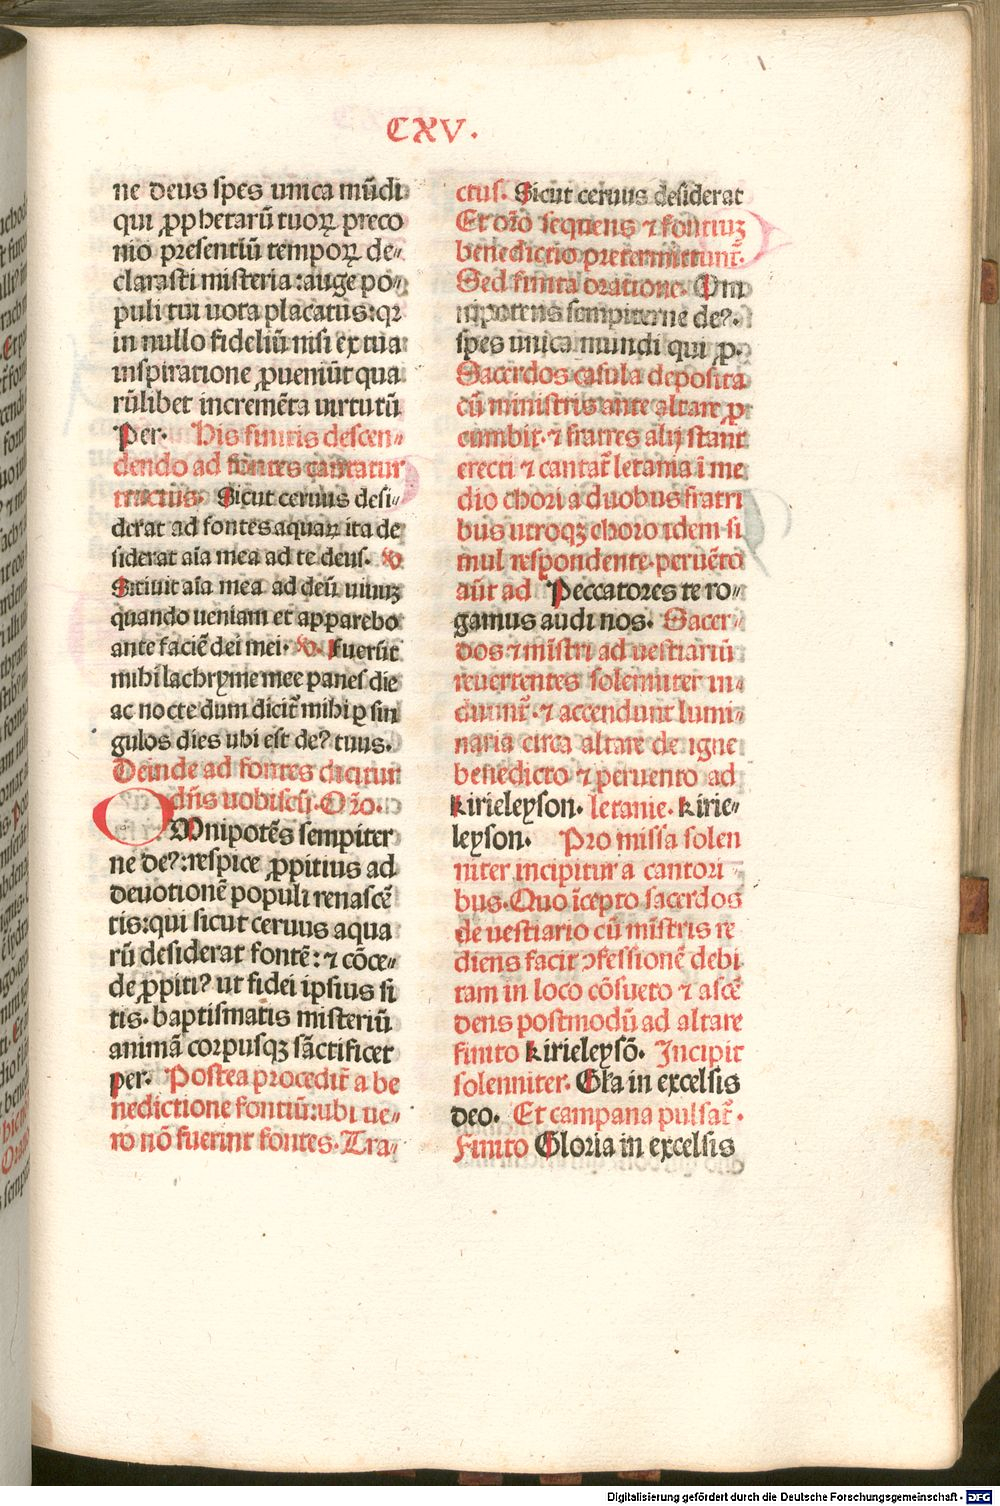 CXV.
ne deus spes unica mūdi
qui ꝓphetarū tuoꝝ preco
nio presentiū tempoꝝ de⸗
clarasti misteria: auge po⸗
puli tui uota placatus: qꝛ
in nullo fideliū nisi ex tua
inspiratione ꝓueniūt qua
rūlibet incremēta uirtutū
Per. His finitis descen⸗
dendo ad fontes cantatur
tractus. Sicut ceruus desi⸗
derat ad fontes aquaꝝ ita de
siderat aīa mea ad te deus. ℣
Sitiuit aīa mea ad deū uiuuꝫ
quando ueniam et apparebo
ante faciē dei mei. ℣. Fuerūt
mihi lachryme mee panes die
ac nocte dum dicit̄ mihi ꝑ sin
gulos dies ubi est deꝰ tuus.
Deinde ad fontes dicitur
dn̄s uobiscū. Or̄o.
OMnipotēs sempiter
ne deꝰ: respice ꝓpitius ad
deuotionē populi renascē
tis: qui sicut ceruus aqua
rū desiderat fontē: ⁊ cōce⸗
de ꝓpitiꝰ ut fidei ipsius si
tis. baptismatis misteriū
animā corpusqꝫ sāctificet
per. Postea procedit̄ a be
nedictione fontiū: ubi ue⸗
ro nō fuerint fontes. Tra⸗
ctus. Sicut ceruus desiderat
Et or̄o sequens ⁊ fontiuꝫ
benedictio pretermittunt̄.
Sed finita oratione. Om
nipotens sempiterne deꝰ.
spes unica mundi qui ꝓ.
Sacerdos casula deposita
cū ministris ante altare ꝓ
cumbit. ⁊ fratres alij stant
erecti ⁊ cantat̄ letania ī me
dio chori a duobus fratri
bus utroqꝫ choro idem si
mul respondente. peruēto
aūt ad Peccatores te ro⸗
gamus audi nos. Sacer⸗
dos ⁊ mīstri ad uestiariū
reuertentes solenniter in⸗
duunt̄. ⁊ accendunt lumi⸗
naria circa altare de igne
benedicto ⁊ peruento ad
kirieleyson. letanie. kirie⸗
leyson. Pro missa solen
niter incipitur a cantori⸗
bus. Quo īcepto sacerdos
de uestiario cū mīstris re
diens facit ꝯfessionē debi
tam in loco cōsueto ⁊ ascē
dens postmodū ad altare
finito kirieleysō. Incipit
solenniter. Gl̄a in excelsis
deo. Et campana pulsat̄.
Finito Gloria in excelsis
Digitalisierung gefördert durch die Deutsche Forschungsgemeinschaft - DFG